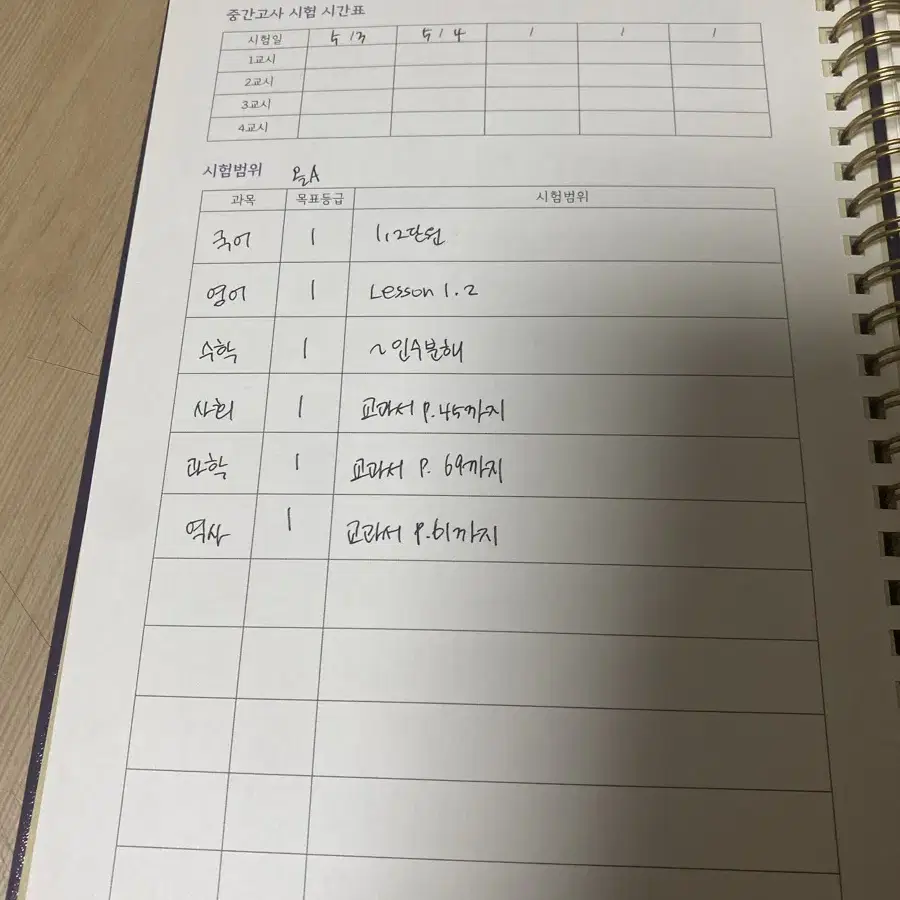 중간고사 시험 시간표
시험일 5/3 5/4 / / /
1교시
2교시
3교시
4교시
시험범위 올A
과목 목표등급 시험범위
국어 1 1,2단원
영어 1 Lesson 1.2
수학 1 ~인수분해
사회 1 교과서 P.45까지
과학 1 교과서 P. 69까지
역사 1 교과서 P.61까지